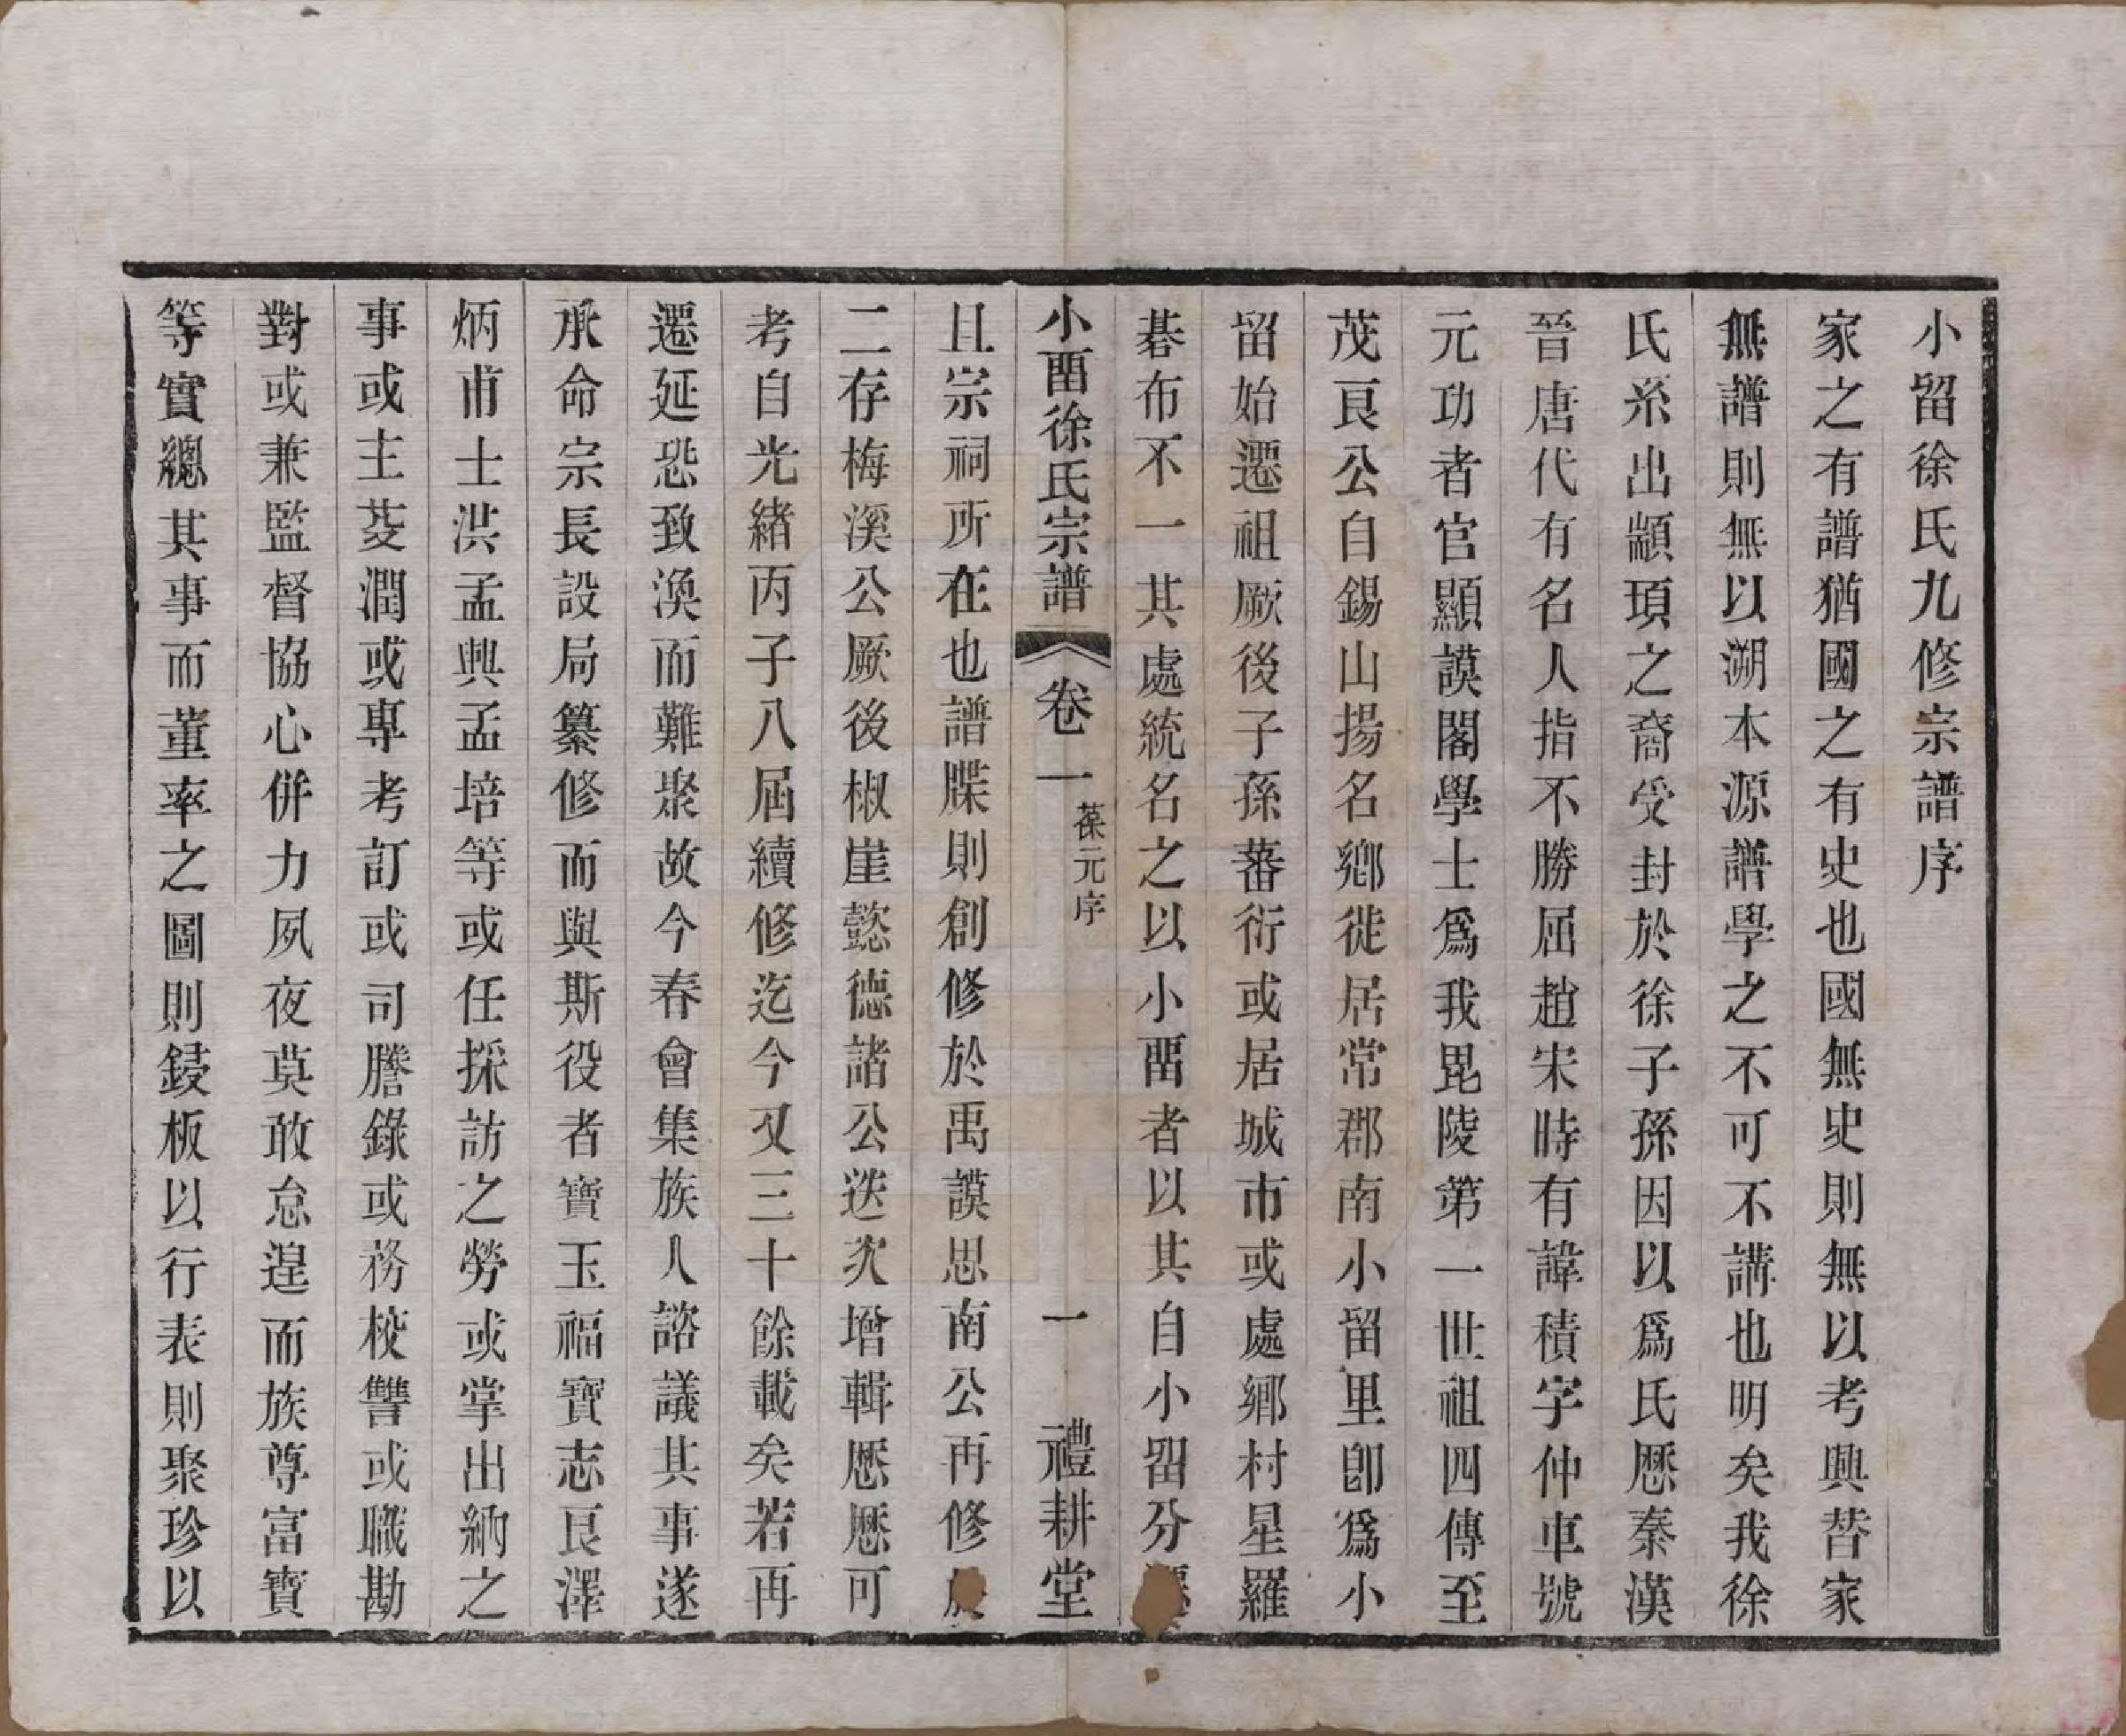 小留徐氏九修宗譜序
家之有譜猶國之有史也國無史則無以考興替家
無譜則無以溯本源譜學之不可不講也明矣我徐
氏系出顓頊之裔受封於徐子孫因以爲氏歷秦漢
晉唐代有名人指不勝屈趙宋時有諱積字仲車號
元功者官顯謨閣學士爲我毘陵第一世祖四傳至
茂良公自錫山揚名鄉徙居常郡南小留里卽爲小
留始遷祖厥後子孫蕃衍或居城市或處鄉村星羅
碁布不一其處統名之以小畱者以其自小留分遷
小畱徐氏宗譜 卷一 葆元序 一 禮耕堂
且宗祠所在也譜牒則創修於禹謨思南公再修於
二存梅溪公厥後椒崖懿德諸公迭次增輯歷歷可
考自光緒丙子八屆續修迄今又三十餘載矣若再
遷延恐致渙而難聚故今春會集族人諮議其事遂
承命宗長設局纂修而與斯役者寶玉福寶志良澤
炳甫士洪孟興孟培等或任採訪之勞或掌出納之
事或主芟潤或專考訂或司謄錄或務校讐或職勘
對或兼監督協心併力夙夜莫敢怠遑而族尊富寶
等實總其事而董率之圖則鋟板以行表則聚珍以